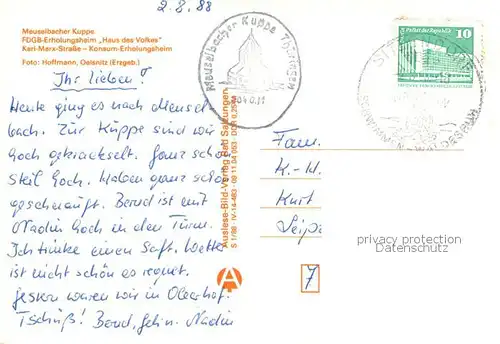 2.8.88
Meuselbacher Kuppe
FDGB-Erholungsheim „Haus des Volkes"
Karl-Marx-Straße – Konsum-Erholungsheim
Foto: Hoffmann, Oelsnitz (Erzgeb.)
Ihr lieben!
Heute ging es nach Meusel-
bach. Zur Kuppe sind wir
hoch gekrackselt. Ganz schön
steil hoch. Haben ganz schön
geschnauft. Bernd ist mit
Nadin hoch in den Turm.
Ich trinke einen Saft. Wetter
ist nicht schön es regnet.
gestern waren wir in Oberhof.
Tschüß! Bernd, Nadin
Meuselbacher Kuppe Thüringen
Auslese-Bild-Verlag Bad Salzungen
10
SCHWIMMEN
Fam.
K.-H.
Kurt
Leipz
7
privacy protection
Datenschutz